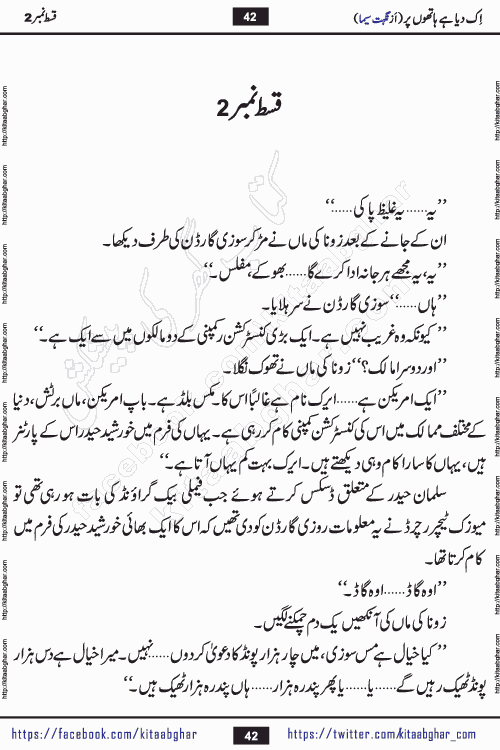 اِک دیا ہے ہاتھوں پر (اَز نگہت سیما)
42
قسط نمبر 2
قسط نمبر 2
’’یہ......یہ غلیظ پا کی......‘‘
ان کے جانے کے بعد زونا کی ماں نے مڑ کر سوزی گارڈن کی طرف دیکھا۔
’’یہ، یہ مجھے ہرجانہ ادا کرے گا......بھوکے، مفلس۔‘‘
’’ہاں......‘‘ سوزی گارڈن نے سر ہلایا۔
’’کیونکہ وہ غریب نہیں ہے۔ ایک بڑی کنسٹرکشن رکمپنی کے دو مالکوں میں سے ایک ہے۔‘‘
’’اور دوسرا مالک؟‘‘ زونا کی ماں نے تھوک نگلا۔
’’ایک امریکن ہے......ایرک نام ہے غالباً اس کا۔ مکس بلڈ ہے۔ باپ امریکن، ماں برٹش، دنیا
کے مختلف ممالک میں اس کی کنسٹرکشن کمپنی کام کر رہی ہے۔ یہاں کی فرم میں خورشید حیدر اس کے پارٹنر
ہیں، یہاں کا سارا کام وہی دیکھتے ہیں۔ ایرک بہت کم یہاں آتا ہے۔‘‘
سلمان حیدر کے متعلق ڈسکس کرتے ہوئے جب فیملی بیک گراؤنڈ کی بات ہو رہی تھی تو
میوزک ٹیچر رچرڈ نے یہ معلومات روزی گارڈن کو دی تھیں کہ اس کا ایک بھائی خورشید حیدر کی فرم میں
کام کرتا تھا۔
’’اوہ گاڈ......اوہ گاڈ۔‘‘
زونا کی ماں کی آنکھیں یک دم چمکنے لگیں۔
’’کیا خیال ہے مس سوزی، میں چار ہزار پونڈ کا دعویٰ کر دوں......نہیں۔ میرا خیال ہے دس ہزار
پونڈ ٹھیک رہیں گے......یا......یا پھر پندرہ ہزار......ہاں پندرہ ہزار ٹھیک ہیں۔‘‘
https://facebook.com/kitaabghar
42
https://twitter.com/kitaabghar_com
http://kitaabghar.com